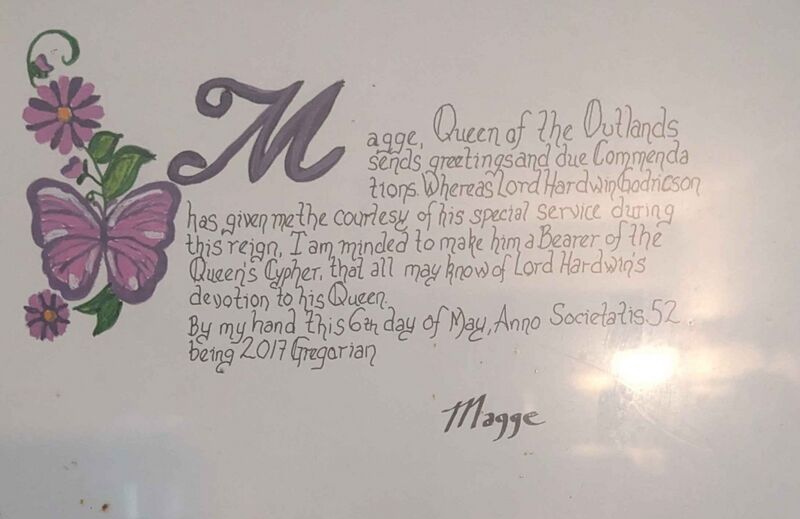 Magge, Queen of the Outlands
sends greetings and due Commenda
tions. Whereas Lord Hardwin Godricson
has given me the courtesy of his special service during
this reign, I am minded to make him a Bearer of the
Queen's Cypher, that all may know of Lord Hardwin's
devotion to his Queen.
By my hand this 6th day of May, Anno Societatis 52
being 2017 Gregorian
Magge